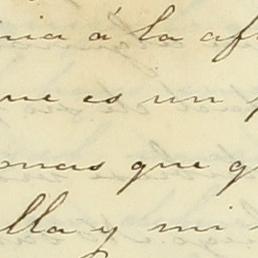 nia á la af
ue es un p
onas que g
lla y mi